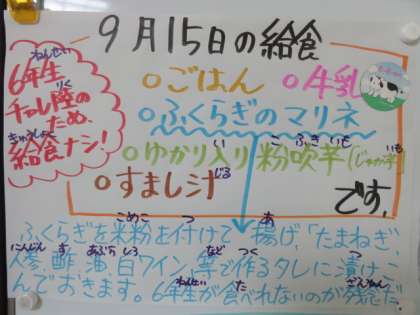 9月15日の給食
6年生
チャレ陸の
ため、
給食ナシ!
○ごはん ○牛乳
○ふくらぎのマリネ
○ゆかり入り粉吹芋(じゃが芋)
○すまし汁
です。
ふくらぎを米粉を付けて揚げ、「たまねぎ、
人参、酢、油、白ワイン」等で作るタレに漬けこ
んでおきます。6年生が食べれないのが残念だ。